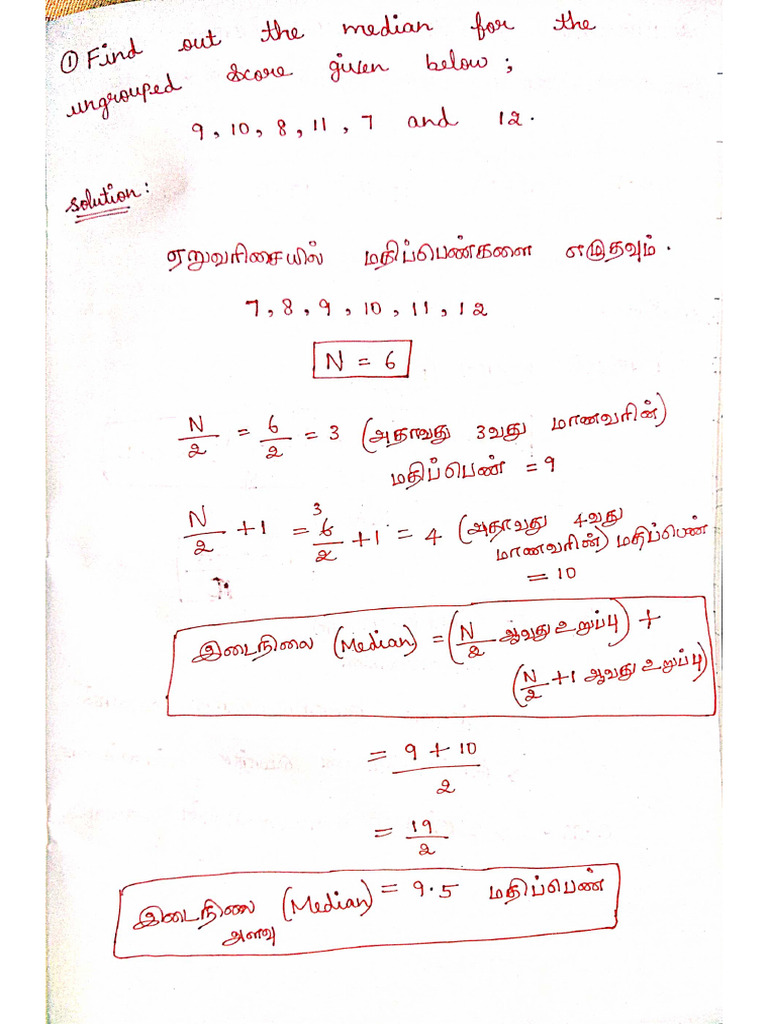 ① Find out the median for the
ungrouped score given below;
9, 10, 8, 11, 7 and 12.
solution:
ஏறுவரிசையில் மதிப்பெண்களை எழுதவும்.
7, 8, 9, 10, 11, 12
N = 6
N/2 = 6/2 = 3 (அதாவது 3வது மாணவரின்)
மதிப்பெண் = 9
N/2 + 1 = 6/2 + 1 = 4 (அதாவது 4வது
3
மாணவரின்) மதிப்பெண்
= 10
இடைநிலை (Median) = (N/2 ஆவது உறுப்பு) +
(N/2 + 1 ஆவது உறுப்பு)
= 9 + 10 / 2
= 19/2
இடைநிலை (Median) = 9.5 மதிப்பெண்
அளவு